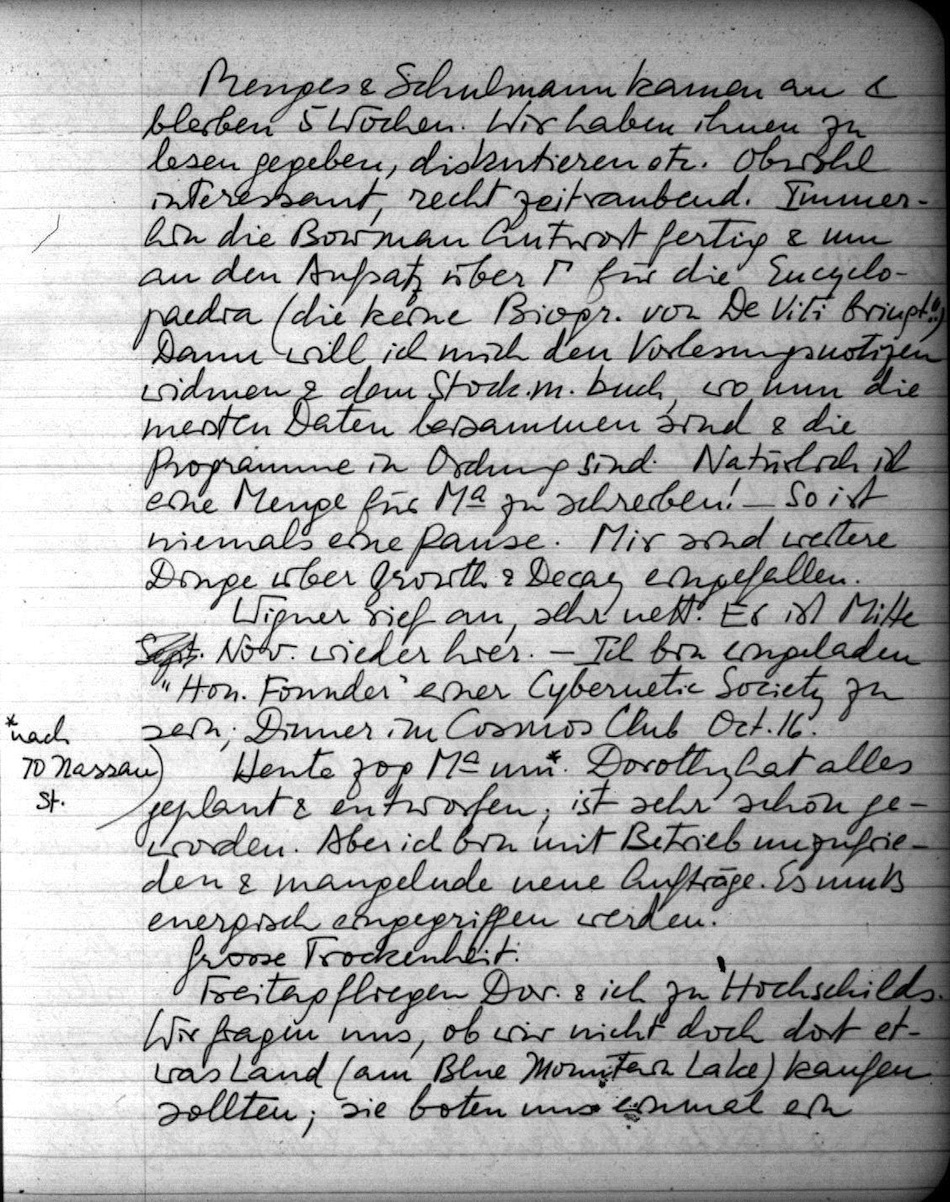 Menges & Schulmann kamen an &
bleiben 5 Wochen. Wir haben ihnen zu
lesen gegeben, diskutieren etc. Obwohl
interessant, recht zeitraubend. Immer-
hin die Bowman Antwort fertig & nun
an den Aufsatz über Γ für die Encyclo-
paedia (die keine Biogr. von De Viti bringt!!)
Dann will ich mich den Vorlesungsnotizen
widmen & dem Stock.m. buch, wo nun die
meisten Daten beisammen sind & die
Programme in Ordnung sind. Natürlich ist
eine Menge für Ma zu schreiben! — So ist
niemals eine Pause. Mir sind weitere
Dinge über Growth & Decay eingefallen.
Wigner rief an, sehr nett. Er ist Mitte
Sept. Nov. wieder hier. — Ich bin eingeladen
"Hon. Founder" einer Cybernetic Society zu
sein; Dinner im Cosmos Club Oct. 16.
*nach
70 Nassau
St.
Heute zog Ma um*. Dorothy hat alles
geplant & entworfen; ist sehr schön ge-
worden. Aber ich bin mit Betrieb unzufrie-
den & mangelnde neue Aufträge. Es muß
energisch eingegriffen werden.
Grosse Trockenheit.
Freitag fliegen Dor. & ich zu Hochschilds.
Wir fragen uns, ob wir nicht doch dort et-
was Land (am Blue Mountain Lake) kaufen
sollten; sie boten uns einmal ein